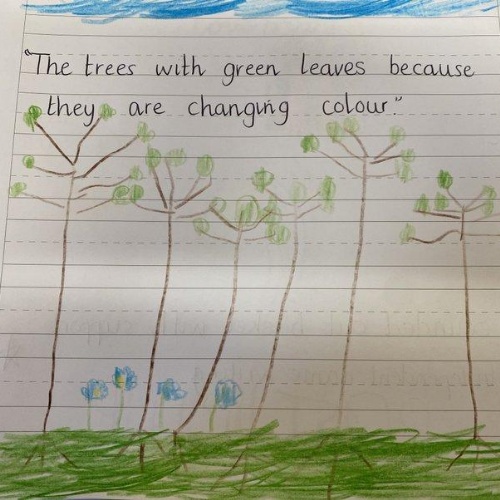 "The trees with green leaves because
they are changing colour."